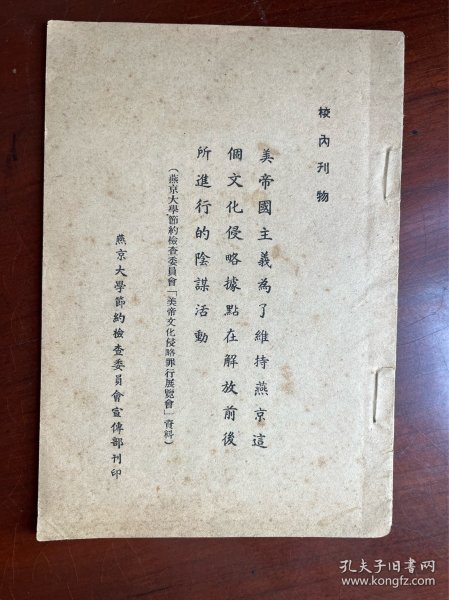 校內刊物
美帝國主義為了維持燕京這
個文化侵略據點在解放前後
所進行的陰謀活動
(燕京大學節約檢查委員會「美帝文化侵略罪行展覽會」資料)
燕京大學節約檢查委員會宣傳部刊印
孔夫子旧书网
www.kongfz.com